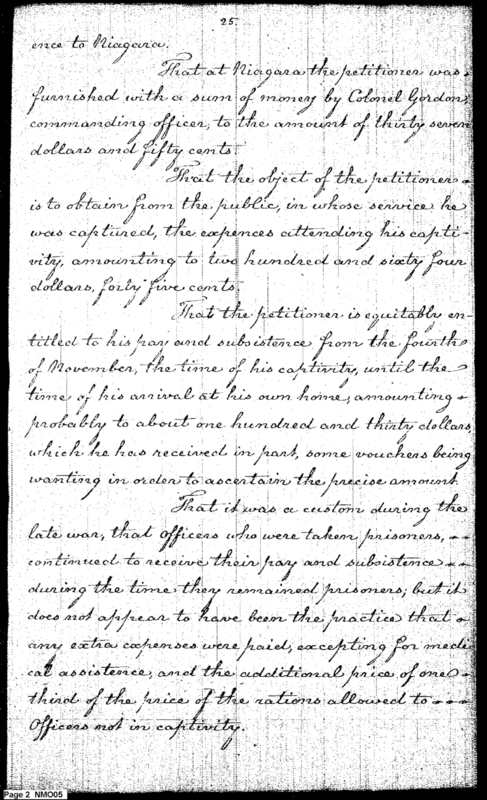 25.
ence to Niagara.
That at Niagara the petitioner was
furnished with a sum of money by Colonel Gordon,
commanding officer, to the amount of thirty seven
dollars and fifty cents.
That the object of the petitioner
is to obtain from the public, in whose service he
was captured, the expences attending his capti-
vity, amounting to two hundred and sixty four
dollars, forty five cents.
That the petitioner is equitably en-
titled to his pay and subsistence from the fourth
of November, the time of his captivity, until the
time of his arrival at his own home, amounting
probably to about one hundred and thirty dollars,
which he has received in part, some vouchers being
wanting in order to ascertain the precise amount.
That it was a custom during the
late war, that officers who were taken prisoners,
continued to receive their pay and subsistence
during the time they remained prisoners; but it
does not appear to have been the practice that
any extra expenses were paid, excepting for medi
cal assistence, and the additional price of one
third of the price of the rations allowed to
Officers not in captivity.
Page 2 NMO05